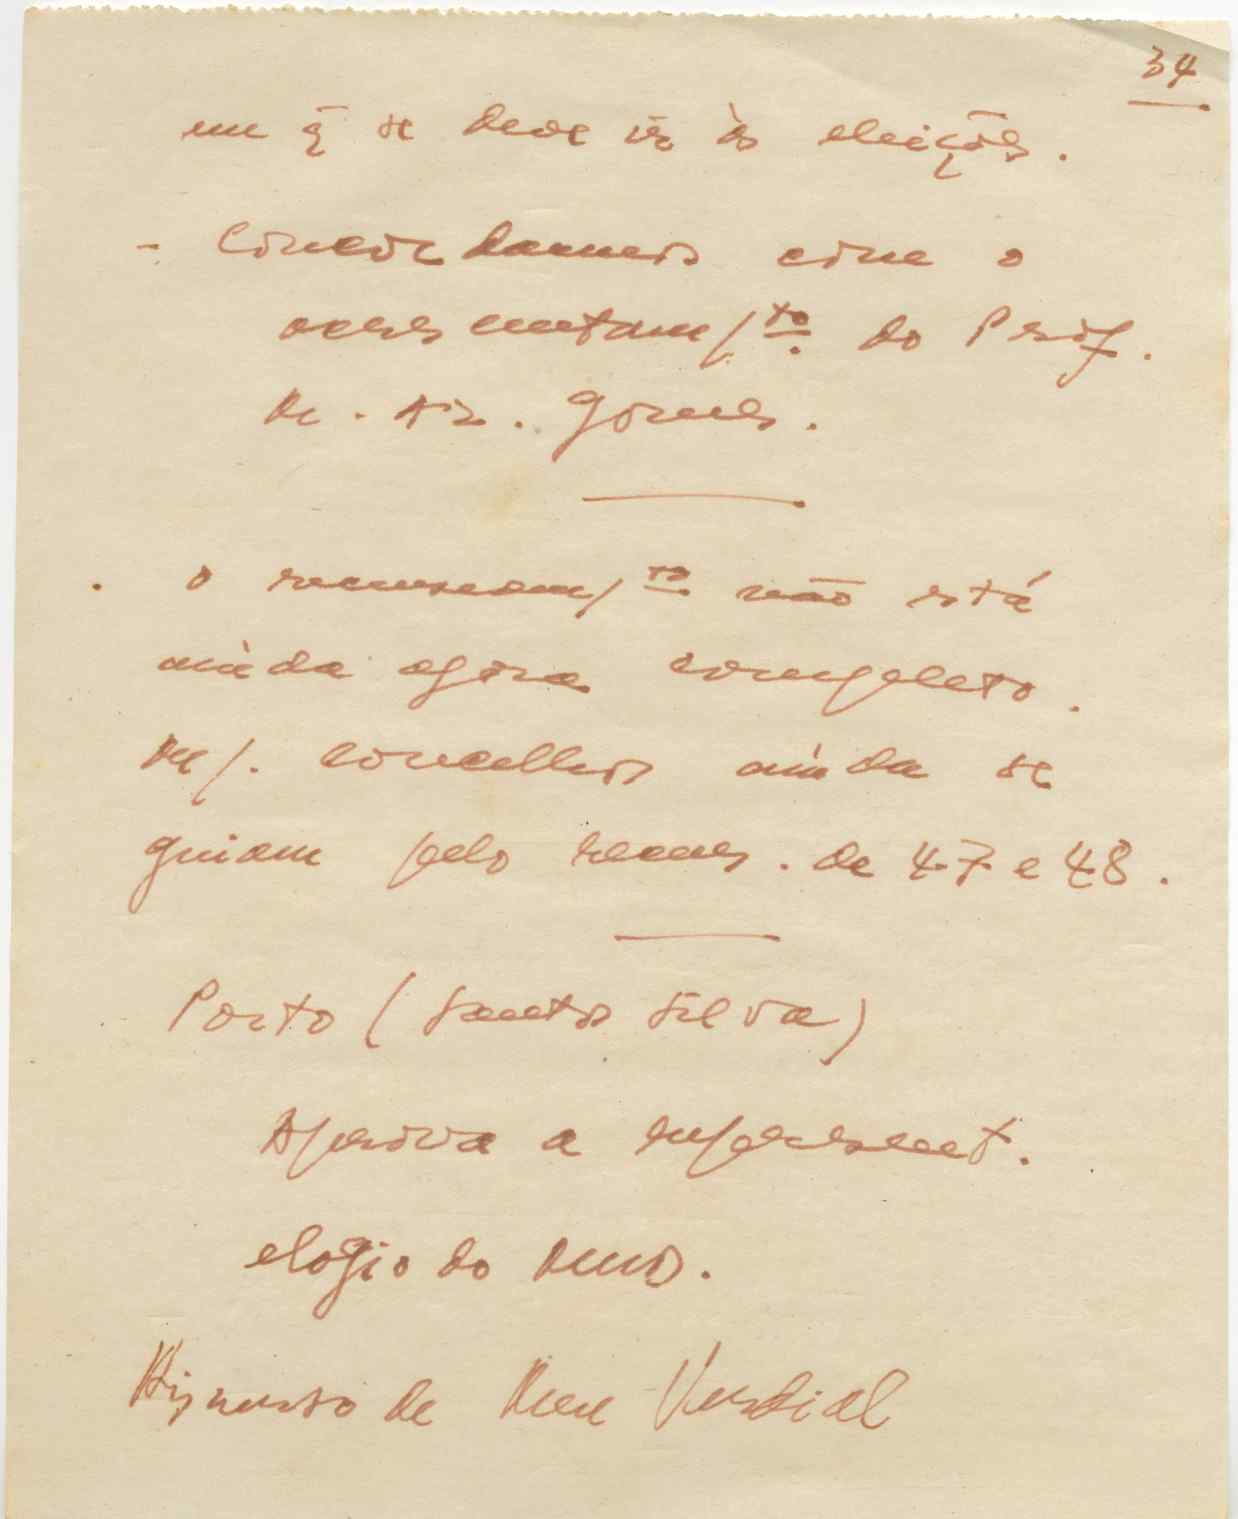 34
em q̃ se deve ir às eleições.
- Concordamos com o
acrescentam/to do Prof.
R. Az. Gomes.
. o recenseam/to não está
ainda agora completo.
M/. concelhos ainda se
guiam pelo recens. de 47 e 48.
Porto (Santos Silva)
Aprova a represent.
elogio do MUD.
Discurso de Mem Verdial